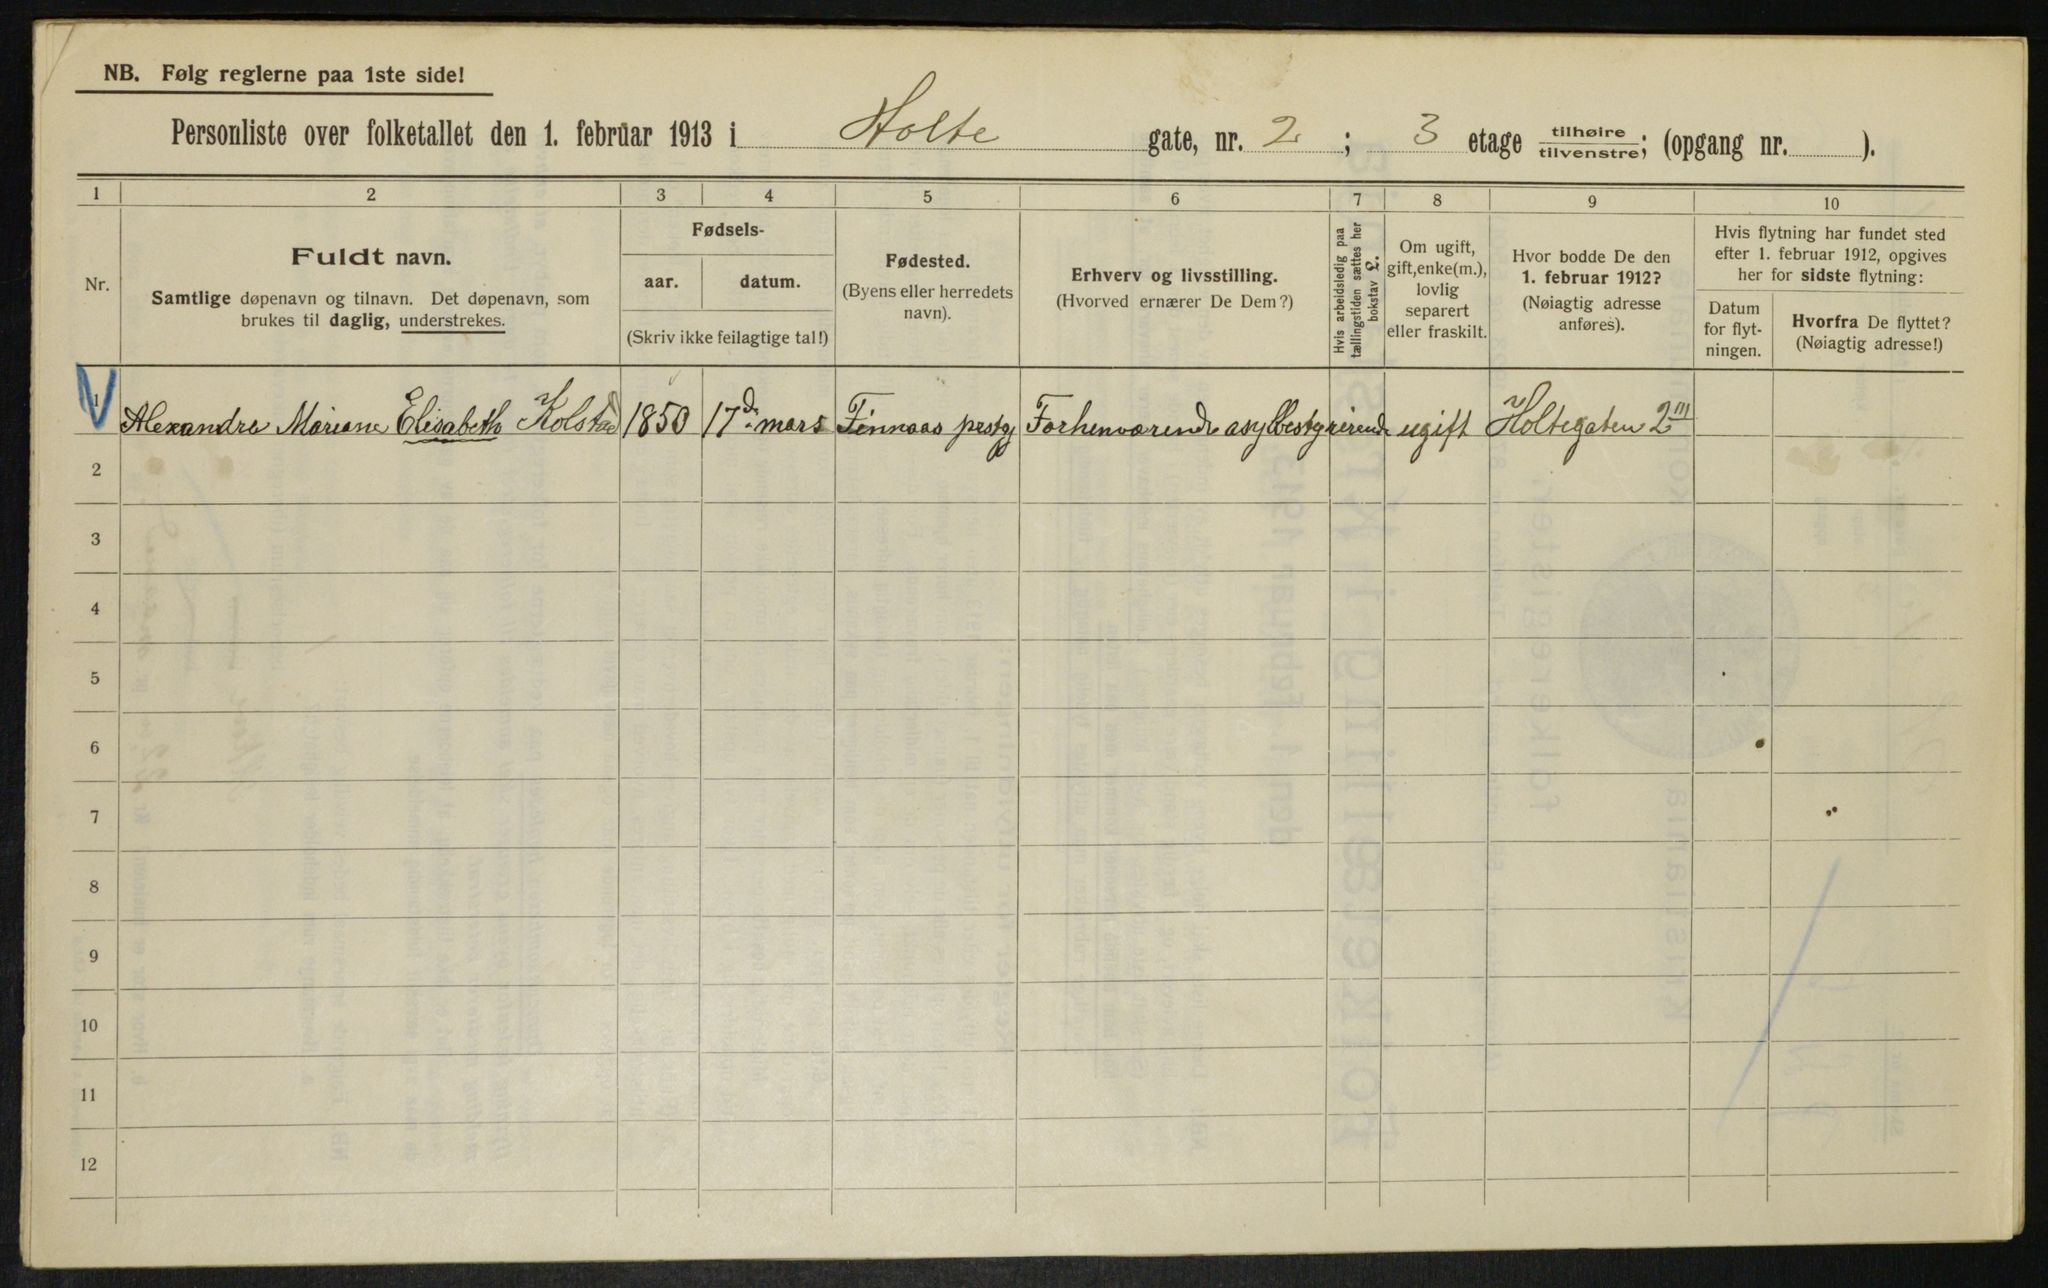 NB. Følg reglerne paa 1ste side!
Personliste over folketallet den 1. februar 1913 i Holte gate, nr. 2 ; 3 etage tilhøire / tilvenstre; (opgang nr. ).
1 2 3 4 5 6 7 8 9 10
Nr.
Fuldt navn.
Samtlige døpenavn og tilnavn. Det døpenavn, som
brukes til daglig, understrekes.
Fødsels-
aar. datum.
(Skriv ikke feilagtige tal!)
Fødested.
(Byens eller herredets
navn).
Erhverv og livsstilling.
(Hvorved ernærer De Dem?)
Hvis arbeidsledig paa
tællingstiden sættes her
bokstav L.
Om ugift,
gift, enke(m.),
lovlig
separert
eller fraskilt.
Hvor bodde De den
1. februar 1912?
(Nøiagtig adresse
anføres).
Hvis flytning har fundet sted
efter 1. februar 1912, opgives
her for sidste flytning:
Datum
for flyt-
ningen.
Hvorfra De flyttet?
(Nøiagtig adresse!)
1 Alexandra Mariane Elisabeth Kolstad 1850 17d. mars Finnaas prestgj Forhenværende asylbestyrerinde ugift Holtegaten 2 III
2
3
4
5
6
7
8
9
10
11
12